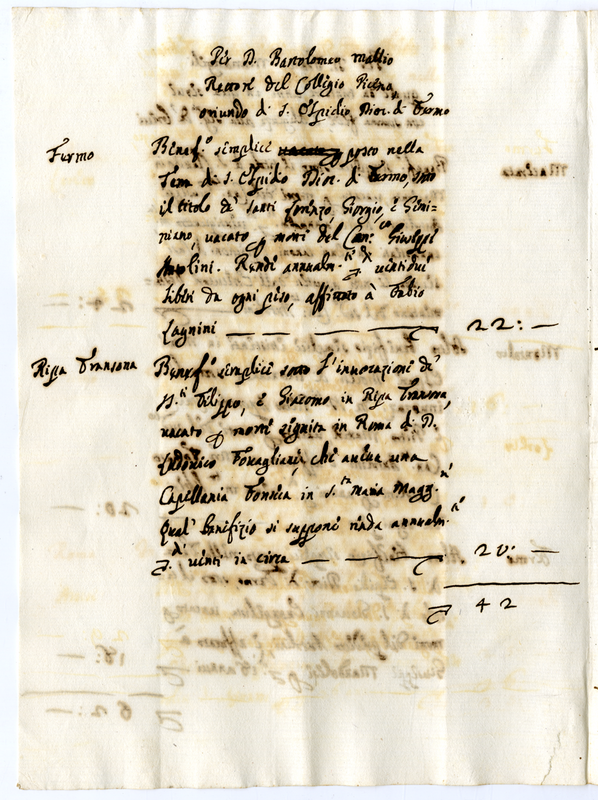 Per D. Bartolomeo Mattio
Rettore del Collegio Piceno
oriundo di S. Elpidio Dioc. di Fermo
Fermo
Benef.o semplice posto nella
Terra di S. Elpidio Dioc. di Fermo, sotto
il titolo de' Santi Lorenzo, Giorgio, e Gimi=
niano, vacato p morte del Can.co Giuseppe
Rende annualm.te ventidue
liberi da ogni peso, affittato à Fabio
Lagnini 22: —
Ripa Transona
Benef.o semplice sotto l'invocazione de'
S.ti Filippo, e Giacomo in Ripa Transona,
vacato p morte seguita in Roma di D.
Ludovico che aveva una
Capellania in S.ta Maria Magg.re
Qual benefizio si suppone renda annualm.te
venti in circa 20: —
42